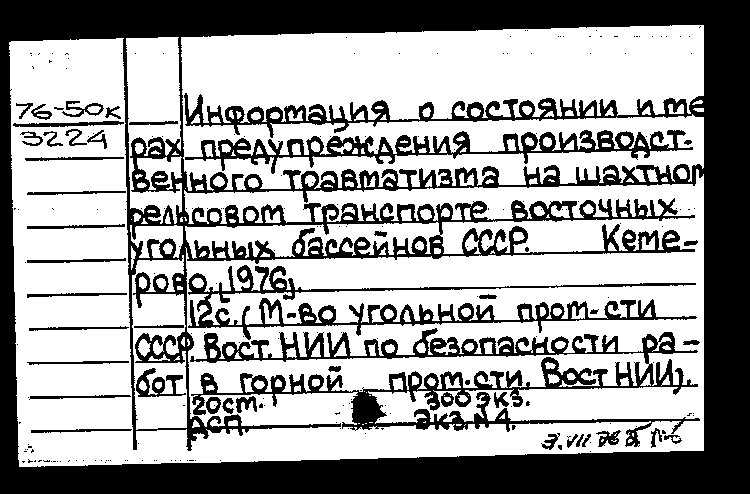 76-50к
3224
Информация о состоянии и ме
рах предупреждения производст-
венного травматизма на шахтном
рельсовом транспорте восточных
угольных бассейнов СССР. Кеме-
рово, [1976].
12с. (М-во угольной пром-сти
СССР. Вост. НИИ по безопасности ра-
бот в горной пром-сти. Вост НИИ).
20ст. 300 экз.
ДСП. Экз. №4.